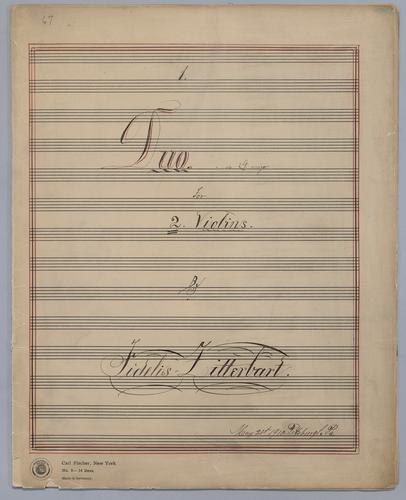 67
1.
Duo in G major
For
2. Violins.
By
Fidelis Zitterbart.
May 21st 1910 Pittsburgh, Pa
Carl Fischer, New York
No. 5 – 14 lines